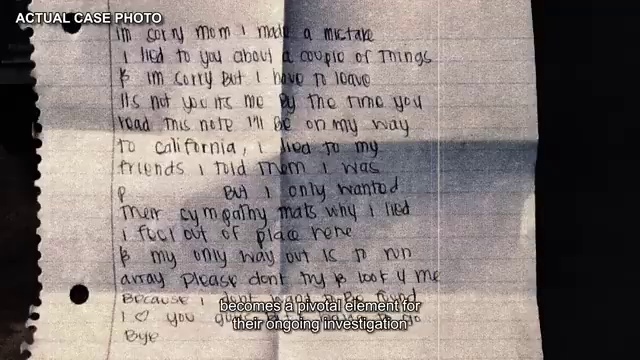 ACTUAL CASE PHOTO
im sorry mom i made a mistake
i lied to you about a couple of things
& im sorry But i have to leave
its not you its me By the time you
read this note i'll Be on my way
to california, i lied to my
friends i told them i was
p But i only wanted
their sympathy thats why i lied
i feel out of place here
& my only way out is to run
away please dont try & look 4 me
Because i dont want to Be found
i ♡ you guys But i have to go
Bye
becomes a pivotal element for
their ongoing investigation